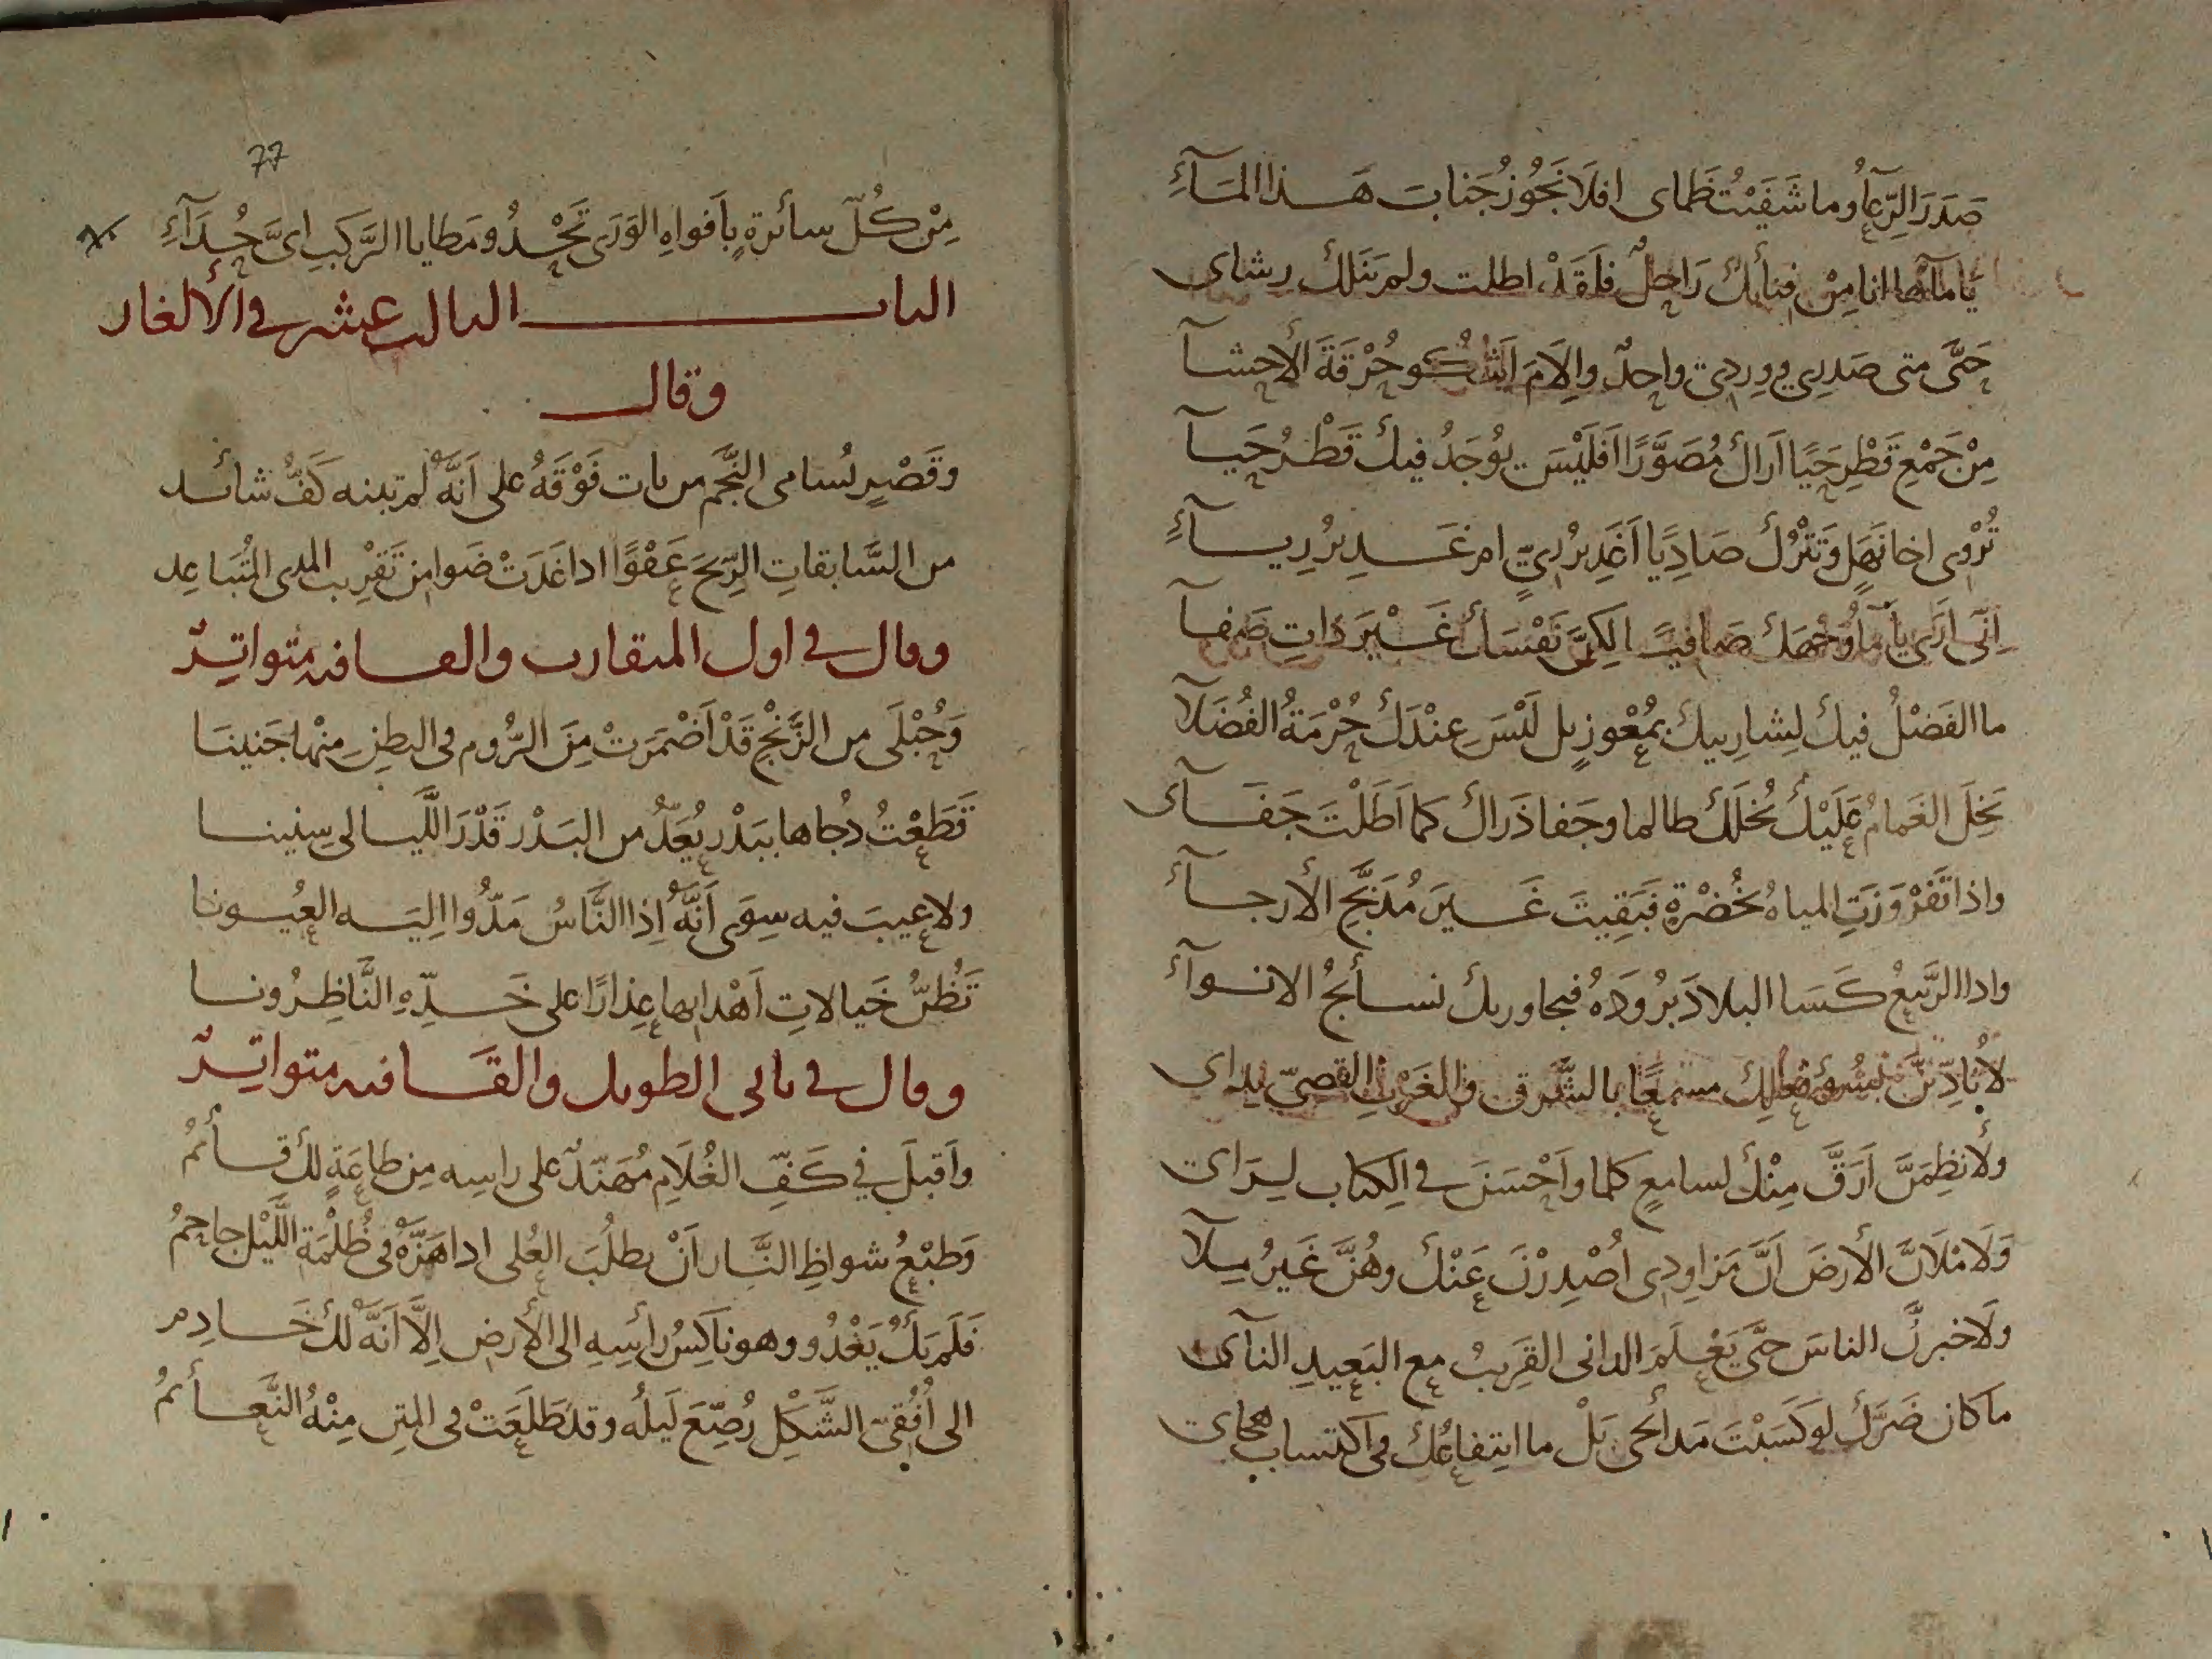 صَدَرَ الرِّعَآءُ وما شَفَيْتُ ظَماى افلَا نَجُوزُ جَنابَ هَذا المَآءِ
يَا مآءُ ها انا مِنْ فِنائكَ رَاحِلٌ فلَقَدْ اطلت ولم يَنَلْكَ رِشاى
حَتَّى متى صَدرِى ووِردِى واحِدٌ وإلَامَ اَشْكُو حُرْقَةَ الأحشآ
مِنْ جَمْعِ قَطْرِ حَيًا اَرَاكَ مُصَوَّرًا اَفلَيْسَ يُوجَدُ فيكَ قَطْرُ حَيآ
تُرْوِى اخا نَهَلٍ وَتَتْرُكُ صَادِيًا اَغَدِيرُ رِيٍّ ام غَدِيرُ رِيآءِ
اِنّى اَرَى يا مآءُ وَجْهَكَ صَافيًا لكِنَّ نَفْسَكَ غَيْرَ ذاتِ صَفآ
ما الفَضْلُ فيكَ لِشارِبيكَ بمُعْوِزٍ بل لَيْسَ عِنْدَكَ حُرْمَةُ الفُضَلآ
بَخِلَ الغَمامُ عَلَيْكَ بُخْلَكَ طالما وجَفا ذَراكَ كما اَطَلْتَ جَفَآى
واذا تَفَرْوَزَتِ المياهُ بخُضْرةٍ فَبَقِيتَ غَيرَ مُدَبَّجِ الأرجآء
واذا الرَّبيعُ كَسَا البلادَ بُرُودَهُ فتجاوزتك نسائجُ الانوآء
لأُنادِيَنَّ بسُوءِ فعلِكَ مسمعًا بالشَّرقِ والغَرْبِ القصِىّ نِداى
ولأنظِمَنَّ اَرَقَّ مِنْكَ لسامعٍ كلما واَحْسَنَ فى الكِتاب لِرَاى
وَلَامْلَأنَّ الأرضَ اَنَّ مَزاوِدِى اُصْدِرْنَ عَنْكَ وهُنَّ غَيرُ مِلآ
ولَاخبِرنَّ الناسَ حتَّى يَعْلَمَ الدانى القَرِيبُ مع البَعِيدِ النآى
مَا كان ضَرَّكَ لو كَسَبْتَ مَدائحى بَلْ ما انتِفاعُكَ فى اكتسابِ هجاى
77
مِنْ كُلّ سائرةٍ بِاَفواهِ الوَرَى تَحْدُو مَطايا الرَّكبِ اىَّ حُدَآءِ
الباب الثالث عشر فى الألغاز
وقال
وقَصْرٍ تُسامى النَّجمَ من بات فَوْقَهُ على اَنَّهُ لم تبنه كَفُّ شائد
من السَّابقاتِ الرِّيحَ عَفْوًا اذا غَدَتْ ضَوامِنَ تَقْرِيبِ المدى المُتَباعِد
وقال فى اول المتقارب والقافيه متواترٌ
وَحُبْلَى من الزَّنْجِ قَدْ اَضْمَرَتْ مِنَ الرُّوم فى البطنِ مِنْها جَنينَا
قَطَعْتُ دُجاها ببَدْرٍ يُعَدُّ من البَدْرِ قَدْرَ اللَّيالى سِنينا
ولا عَيبَ فيه سِوَى اَنَّهُ اِذا النَّاسُ مَدُّوا اِلَيه العُيونا
تَظُنُّ خَيالاتِ اَهْدابِها عِذارًا على خَدِّهِ النَّاظِرُونا
وقال فى ثانى الطويل والقَافيه متواترٌ
واَقبلَ فِي كَفِّ الغُلَامِ مُهَنّدٌ على راسِه مِن طاعَةٍ لكَ قائمُ
وَطبْعُ شواظِ النَّارِ اَنْ يطلُبَ العُلى اذا هَزَّهُ فى ظُلْمَةِ اللَّيْلِ جاحِمُ
فَلَم يَكُ يَغْدُو وهو ناكِسُ رأسِهِ الى الأرضِ اِلَّا اَنَّهُ لكَ خَادِم
الى اُفُقىِّ الشَّكْلِ رُصِّعَ لَيلُه وقد طَلَعَتْ فى المَتنِ مِنْهُ النَّعائمُ